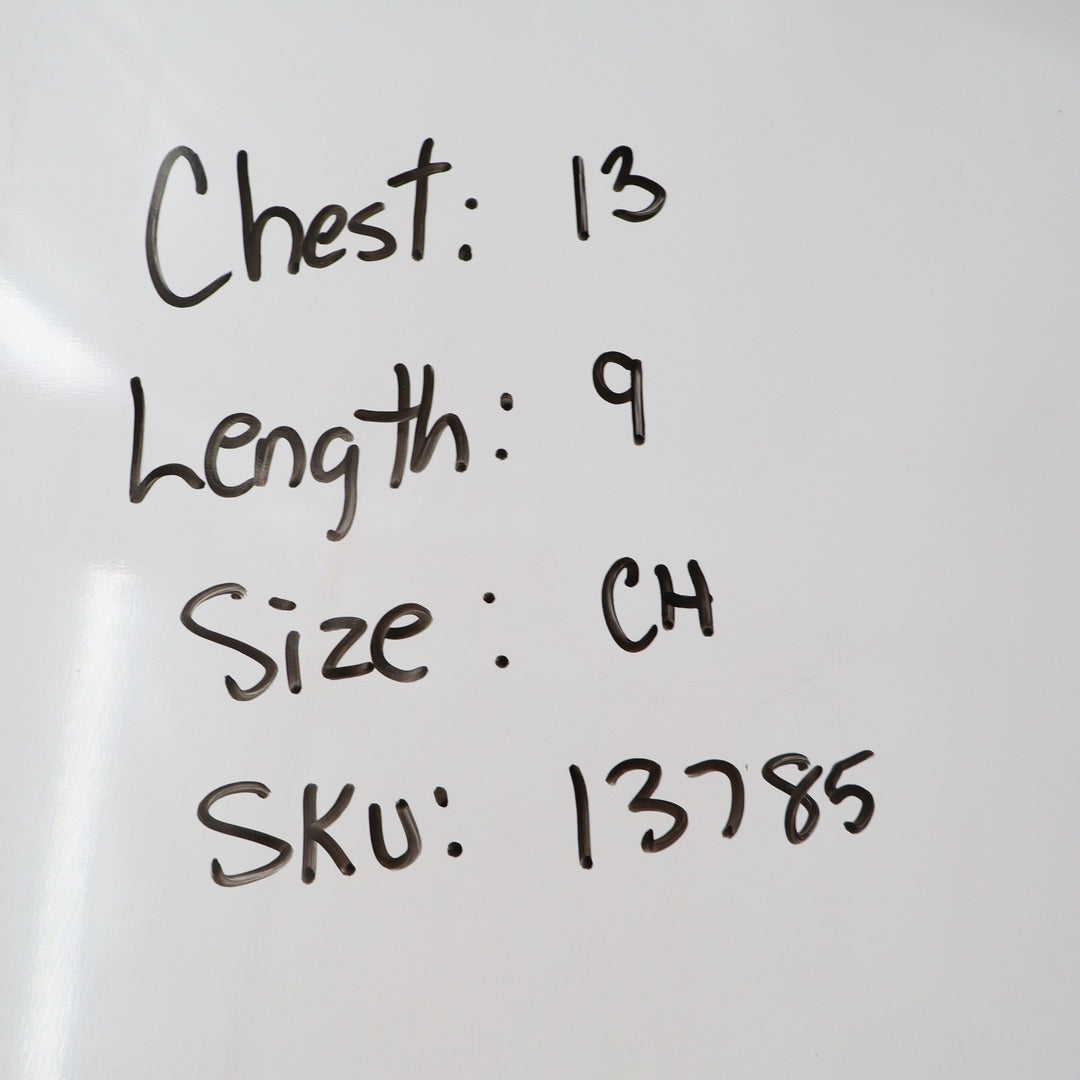 Chest: 13
Length: 9
Size: CH
SKU: 13785